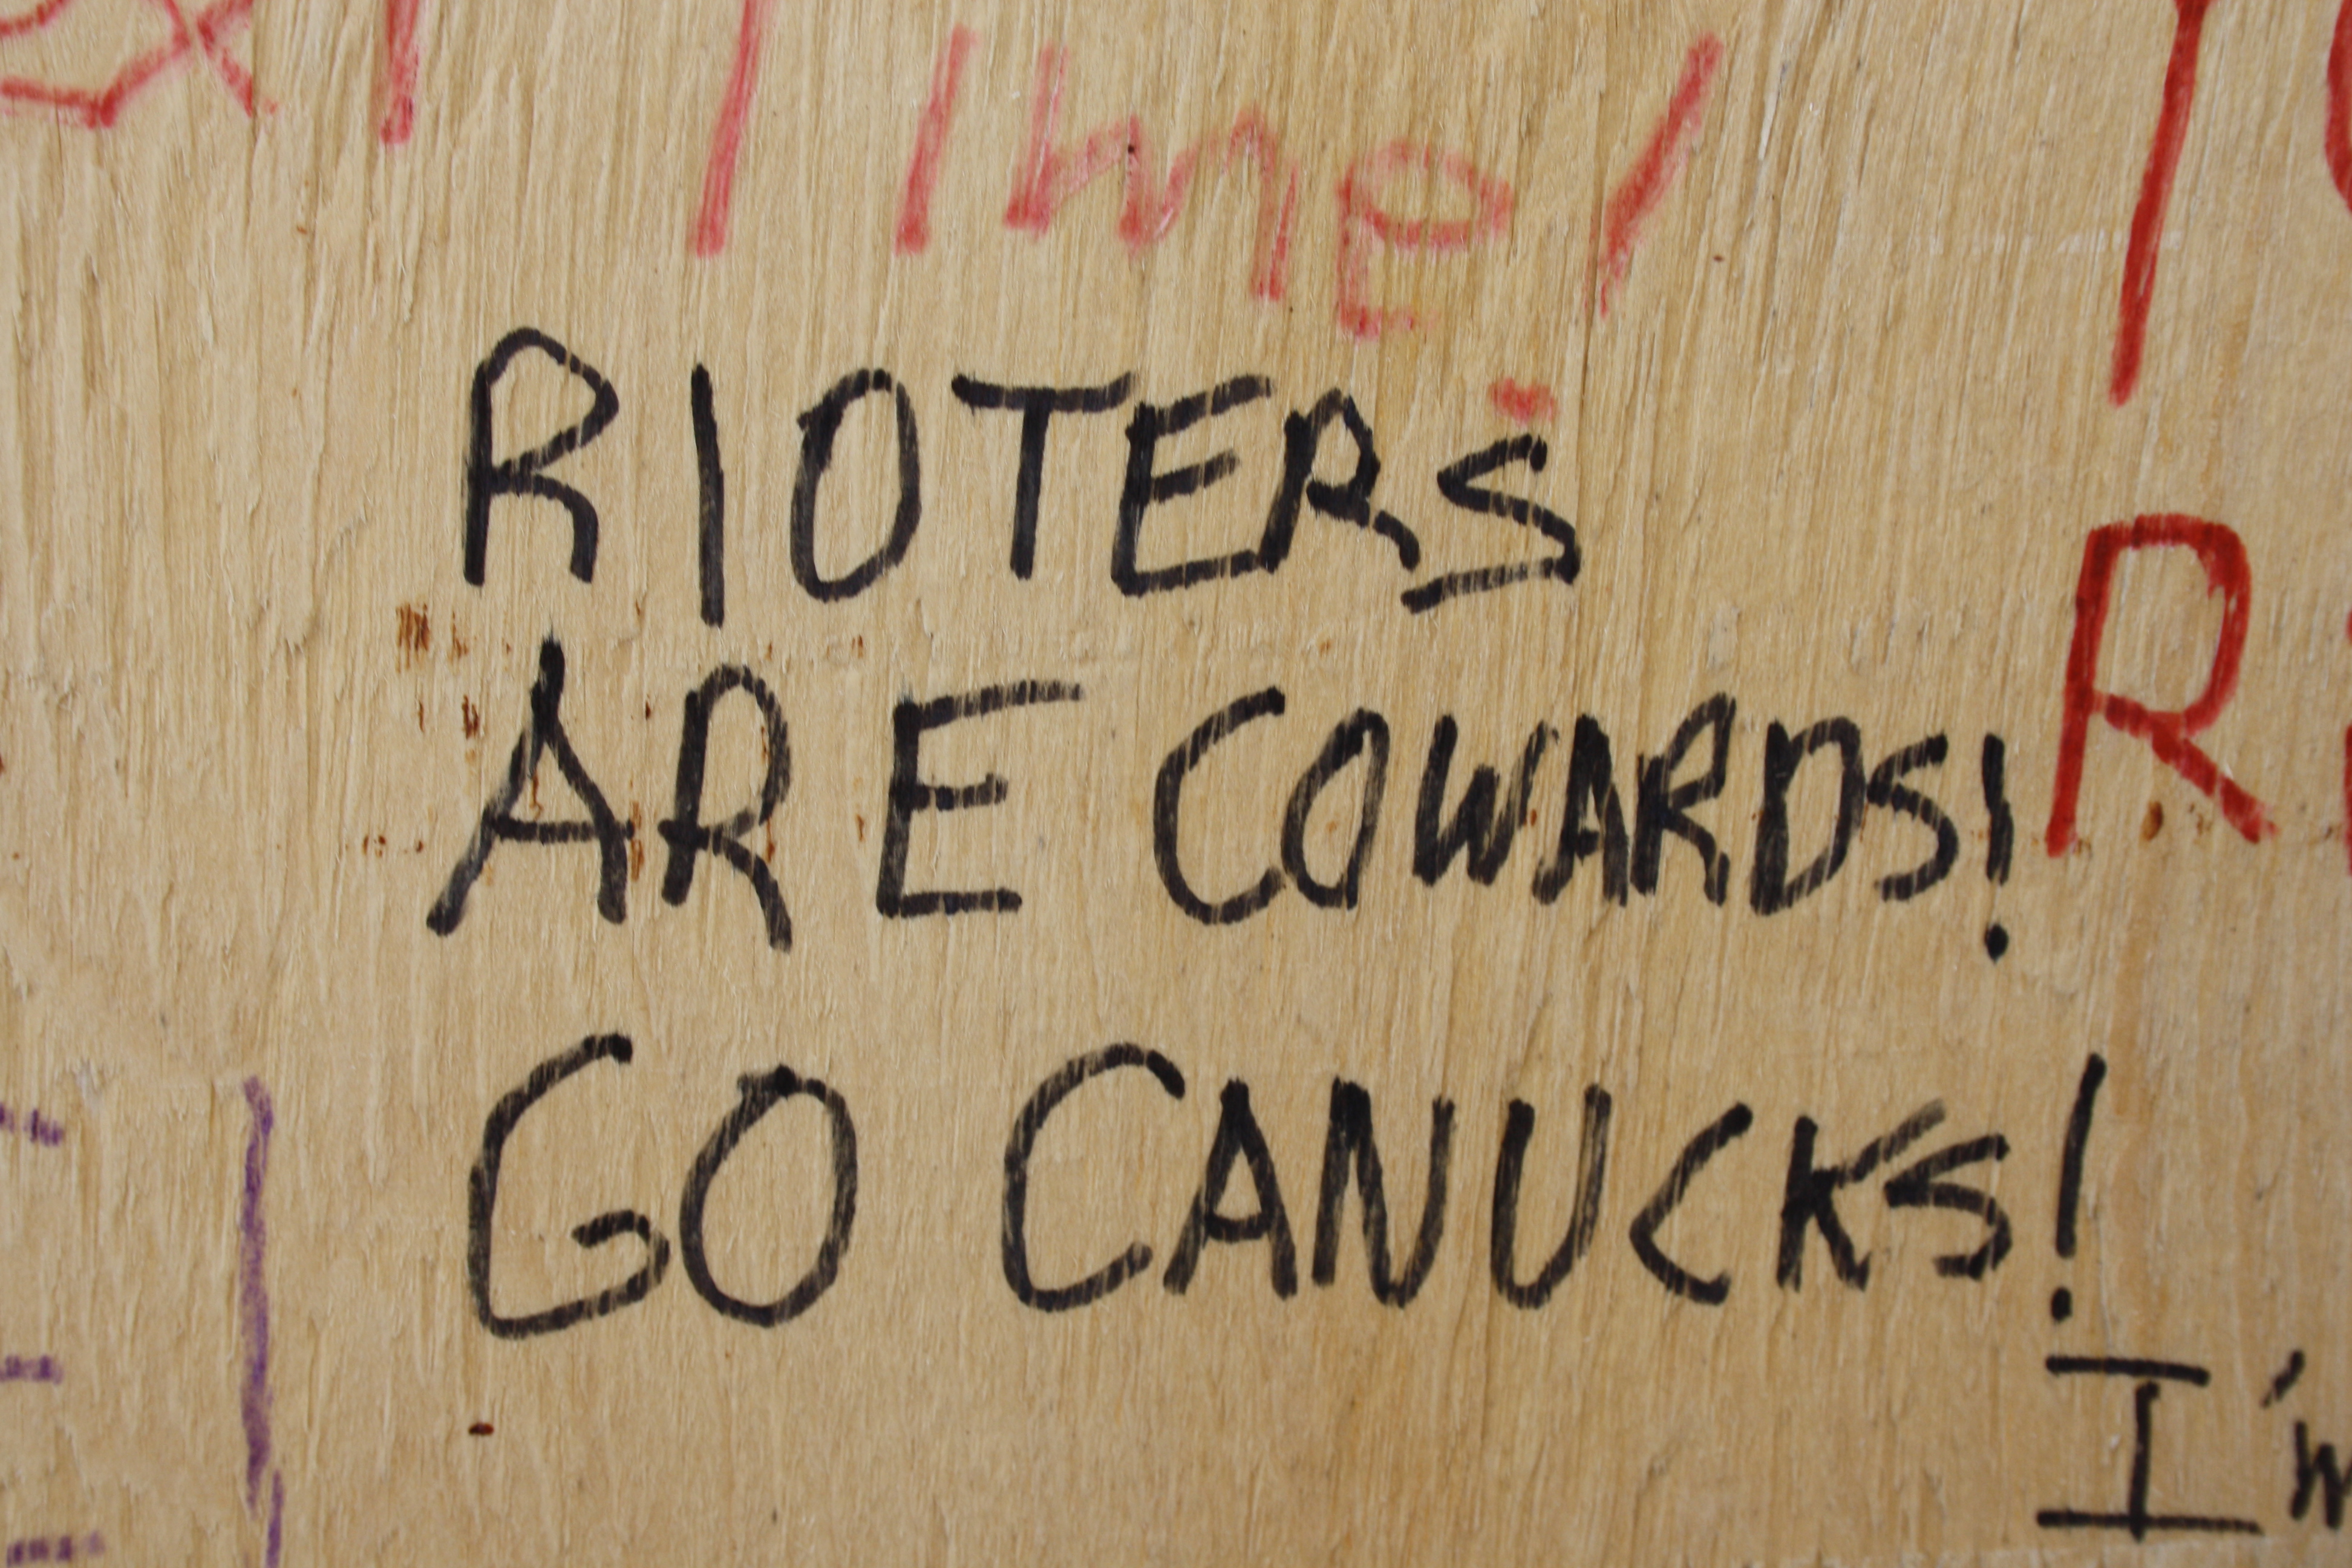 ext Time!
RIOTERS
ARE COWARDS!
GO CANUCKS!
I'm